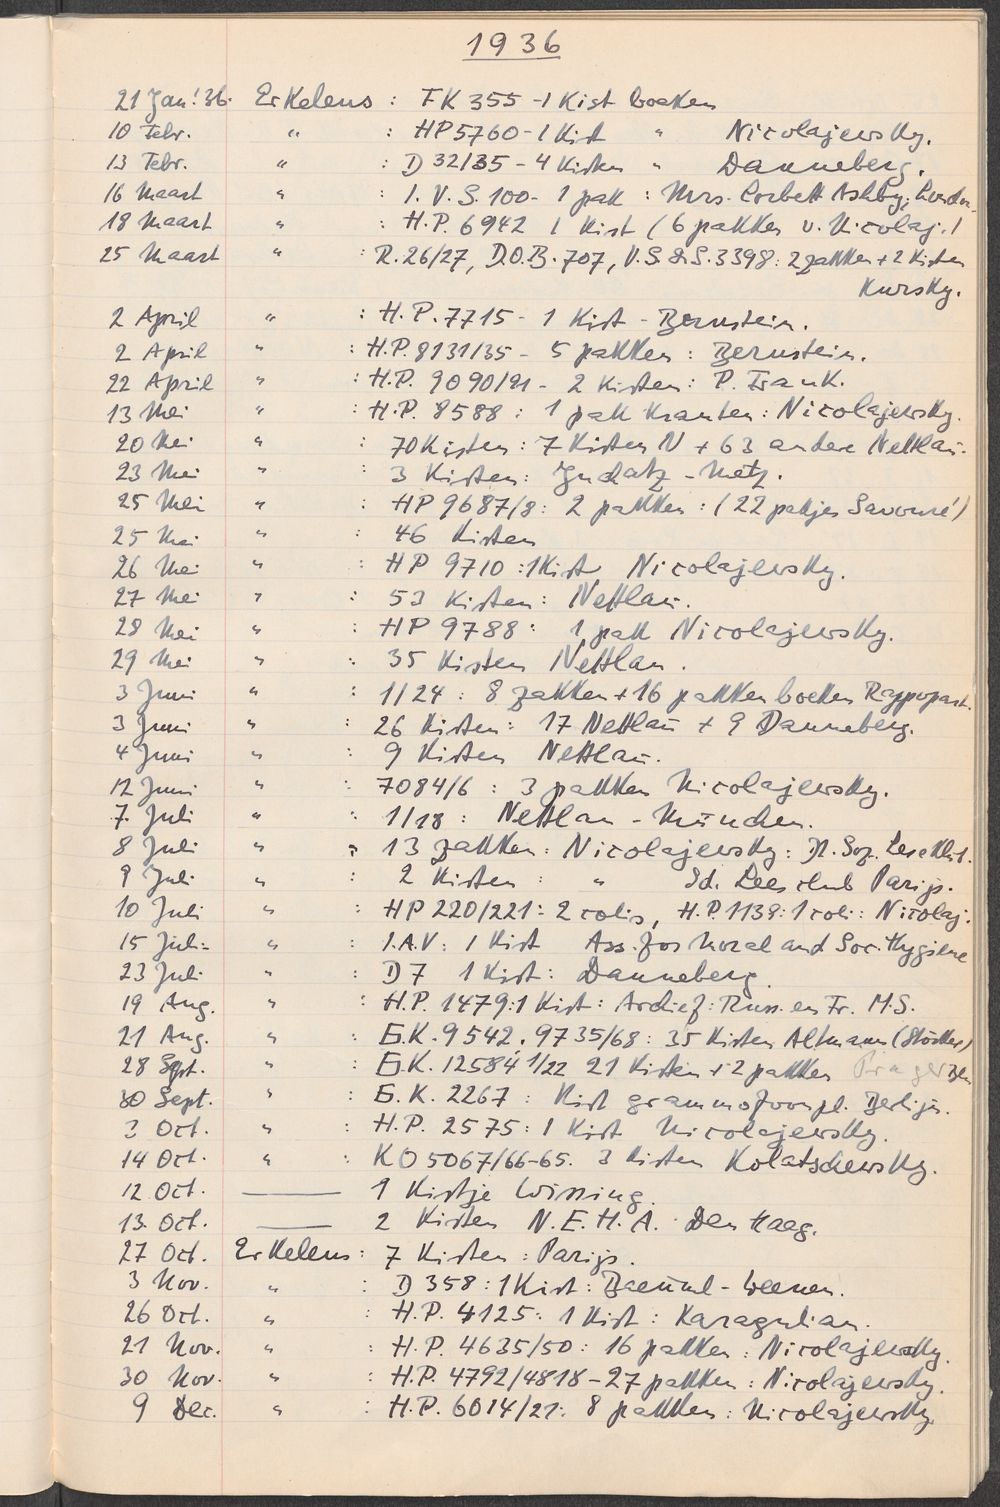 1936
21 Jan. '36. Erkelens : FK 355 - 1 Kist boeken
10 Febr. " : HP 5760 - 1 Kist " Nicolajewsky.
13 Febr. " : D 32/35 - 4 Kisten " Danneberg.
16 Maart " : I.V.S. 100 - 1 pak : Mrs. Corbett Ashby, London.
18 Maart " : H.P. 6942 1 Kist (6 pakken v. Nicolaj.)
25 Maart " : R. 26/27, D.O.B. 707, V.S.&S. 3398 : 2 zakken + 2 Kisten
Kursky.
2 April " : H.P. 7715 - 1 Kist - Bernstein.
2 April " : H.P. 8131/35 - 5 pakken : Bernstein.
22 April " : H.P. 9090/91 - 2 Kisten : P. Frank.
13 Mei " : H.P. 8588 : 1 pak Kranten : Nicolajewsky.
20 Mei " : 70 Kisten : 7 Kisten N + 63 andere Nettlau.
23 Mei " : 3 Kisten : - Metz.
25 Mei " : HP 9687/8 : 2 pakken : (22 pakjes Savouré)
25 Mei " : 46 Kisten
26 Mei " : HP 9710 : 1 Kist Nicolajewsky.
27 Mei " : 53 Kisten : Nettlau.
28 Mei " : HP 9788 : 1 pak Nicolajewsky.
29 Mei " : 35 Kisten Nettlau.
3 Juni " : 1/24 : 8 zakken + 16 pakken boeken Rappoport.
3 Juni " : 26 Kisten : 17 Nettlau + 9 Danneberg.
4 Juni " : 9 Kisten Nettlau.
12 Juni " : 7084/6 : 3 pakken Nicolajewsky.
7 Juli " : 1/18 : Nettlau - München.
8 Juli " : 13 zakken : Nicolajewsky : Soz. Leseklub.
9 Juli " : 2 Kisten : " Sd. Leesclub Parijs.
10 Juli " : HP 220/221 : 2 colis, H.P. 1138 : 1 coli : Nicolaj.
15 Juli " : I.A.V : 1 Kist Ass. for Moral and Soc. Hygiene
23 Juli " : D 7 1 Kist : Danneberg.
19 Aug. " : H.P. 1479 : 1 Kist : Archief : Russ. en Fr. M.S.
21 Aug. " : E.K. 9542. 9735/68 : 35 Kisten Altmann (Stöcker)
28 Sept. " : E.K. 12584 1/22 21 Kisten + 2 pakken
30 Sept. " : E.K. 2267 : Kist grammofoonpl. Berlijn.
2 Oct. " : H.P. 2575 : 1 Kist Nicolajewsky.
14 Oct. " : KO 5067/66-65. 3 Kisten Kolatschewsky.
12 Oct. ——— 1 Kistje Wissing.
13 Oct. ——— 2 Kisten N.E.H.A. Den Haag.
27 Oct. Erkelens : 7 Kisten : Parijs.
3 Nov. " : D 358 : 1 Kist : - Weenen.
26 Oct. " : H.P. 4125 : 1 Kist : Karagulian.
21 Nov. " : H.P. 4635/50 : 16 pakken : Nicolajewsky.
30 Nov. " : H.P. 4792/4818 - 27 pakken : Nicolajewsky.
9 Dec. " : H.P. 6014/21 : 8 pakken : Nicolajewsky.